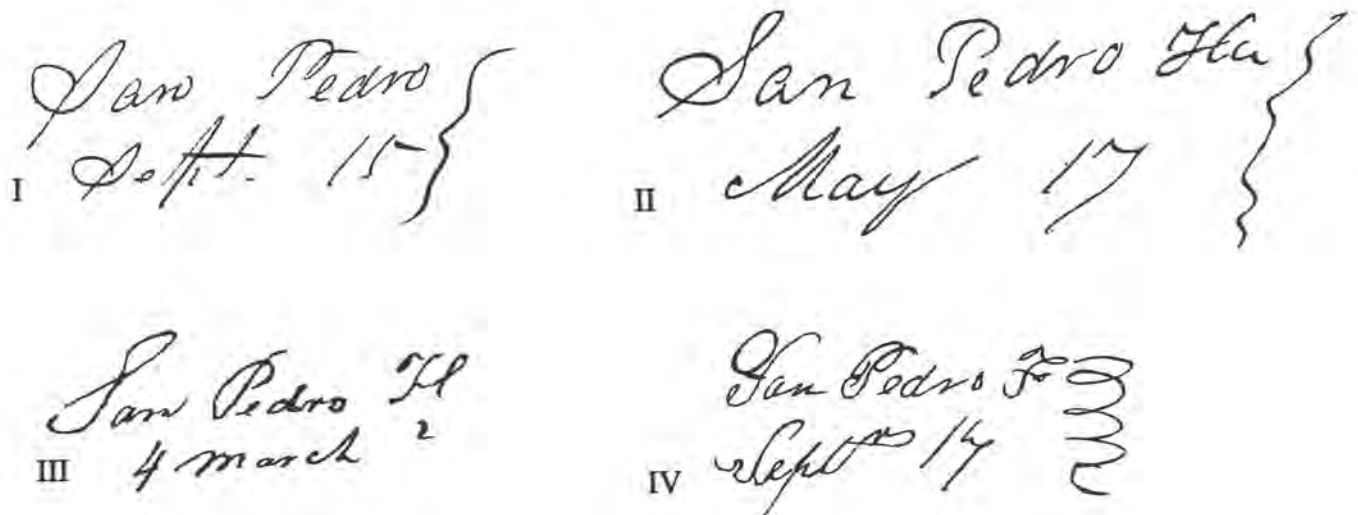 San Pedro
I Sept. 15
San Pedro Fla
II May 17
San Pedro Fl
2
III 4 march
San Pedro F
IV Sept 17